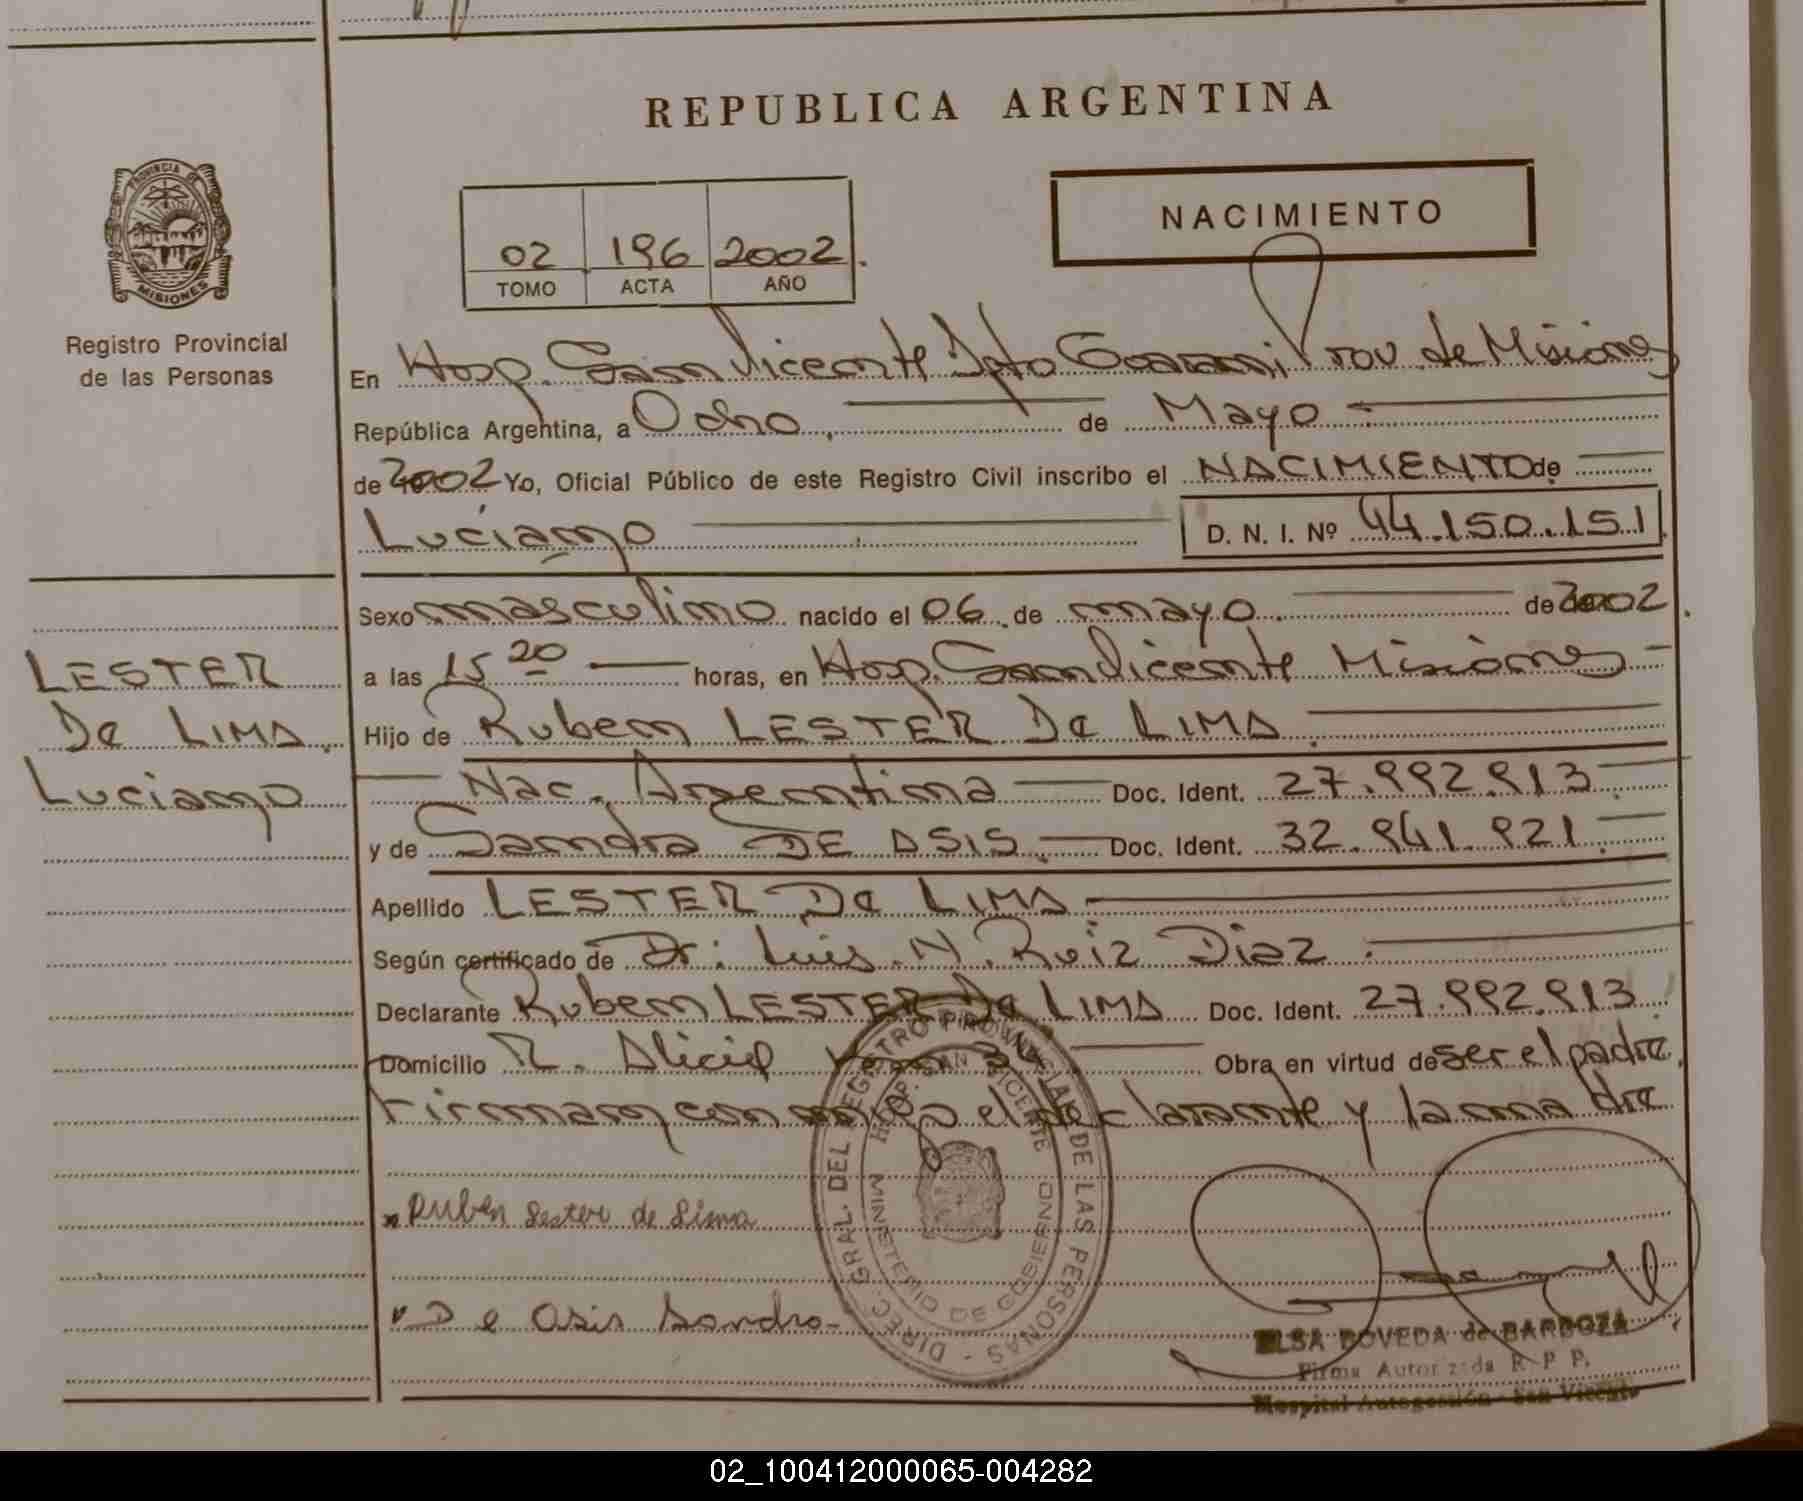 REPUBLICA ARGENTINA
NACIMIENTO
02 196 2002.
TOMO ACTA AÑO
PROVINCIA DE
MISIONES
Registro Provincial
de las Personas
En Hosp. San Vicente Dpto Guarani Prov. de Misiones
República Argentina, a Ocho de Mayo
de 2002 Yo, Oficial Público de este Registro Civil inscribo el NACIMIENTO de
Luciano D. N. I. Nº 44.150.151
Sexo masculino nacido el 06 de mayo de 2002.
a las 15 20 horas, en Hosp. San Vicente Misiones
Hijo de Ruben LESTER De LIMA
Nac. Argentina Doc. Ident. 27.992.913
y de Sandra DE ASIS. Doc. Ident. 32.941.921
Apellido LESTER De LIMA
Según certificado de Dr: Luis. N. Ruiz Diaz
Declarante Ruben LESTER De LIMA Doc. Ident. 27.992.913
Domicilio R. Alicia 34 Obra en virtud de ser el padre.
Firman el declarante y la madre
LESTER
De LIMA.
Luciano
Ruben Lester de Lima
De Asis Sandra
DIREC. GRAL. DEL REGISTRO PROVINCIAL DE LAS PERSONAS -
HOSP. SAN VICENTE
MINISTERIO DE GOBIERNO
ELSA POVEDA de BARBOZA
Firma Autorizada R. P. P.
Hospital Autogestión - San Vicente
02_100412000065-004282